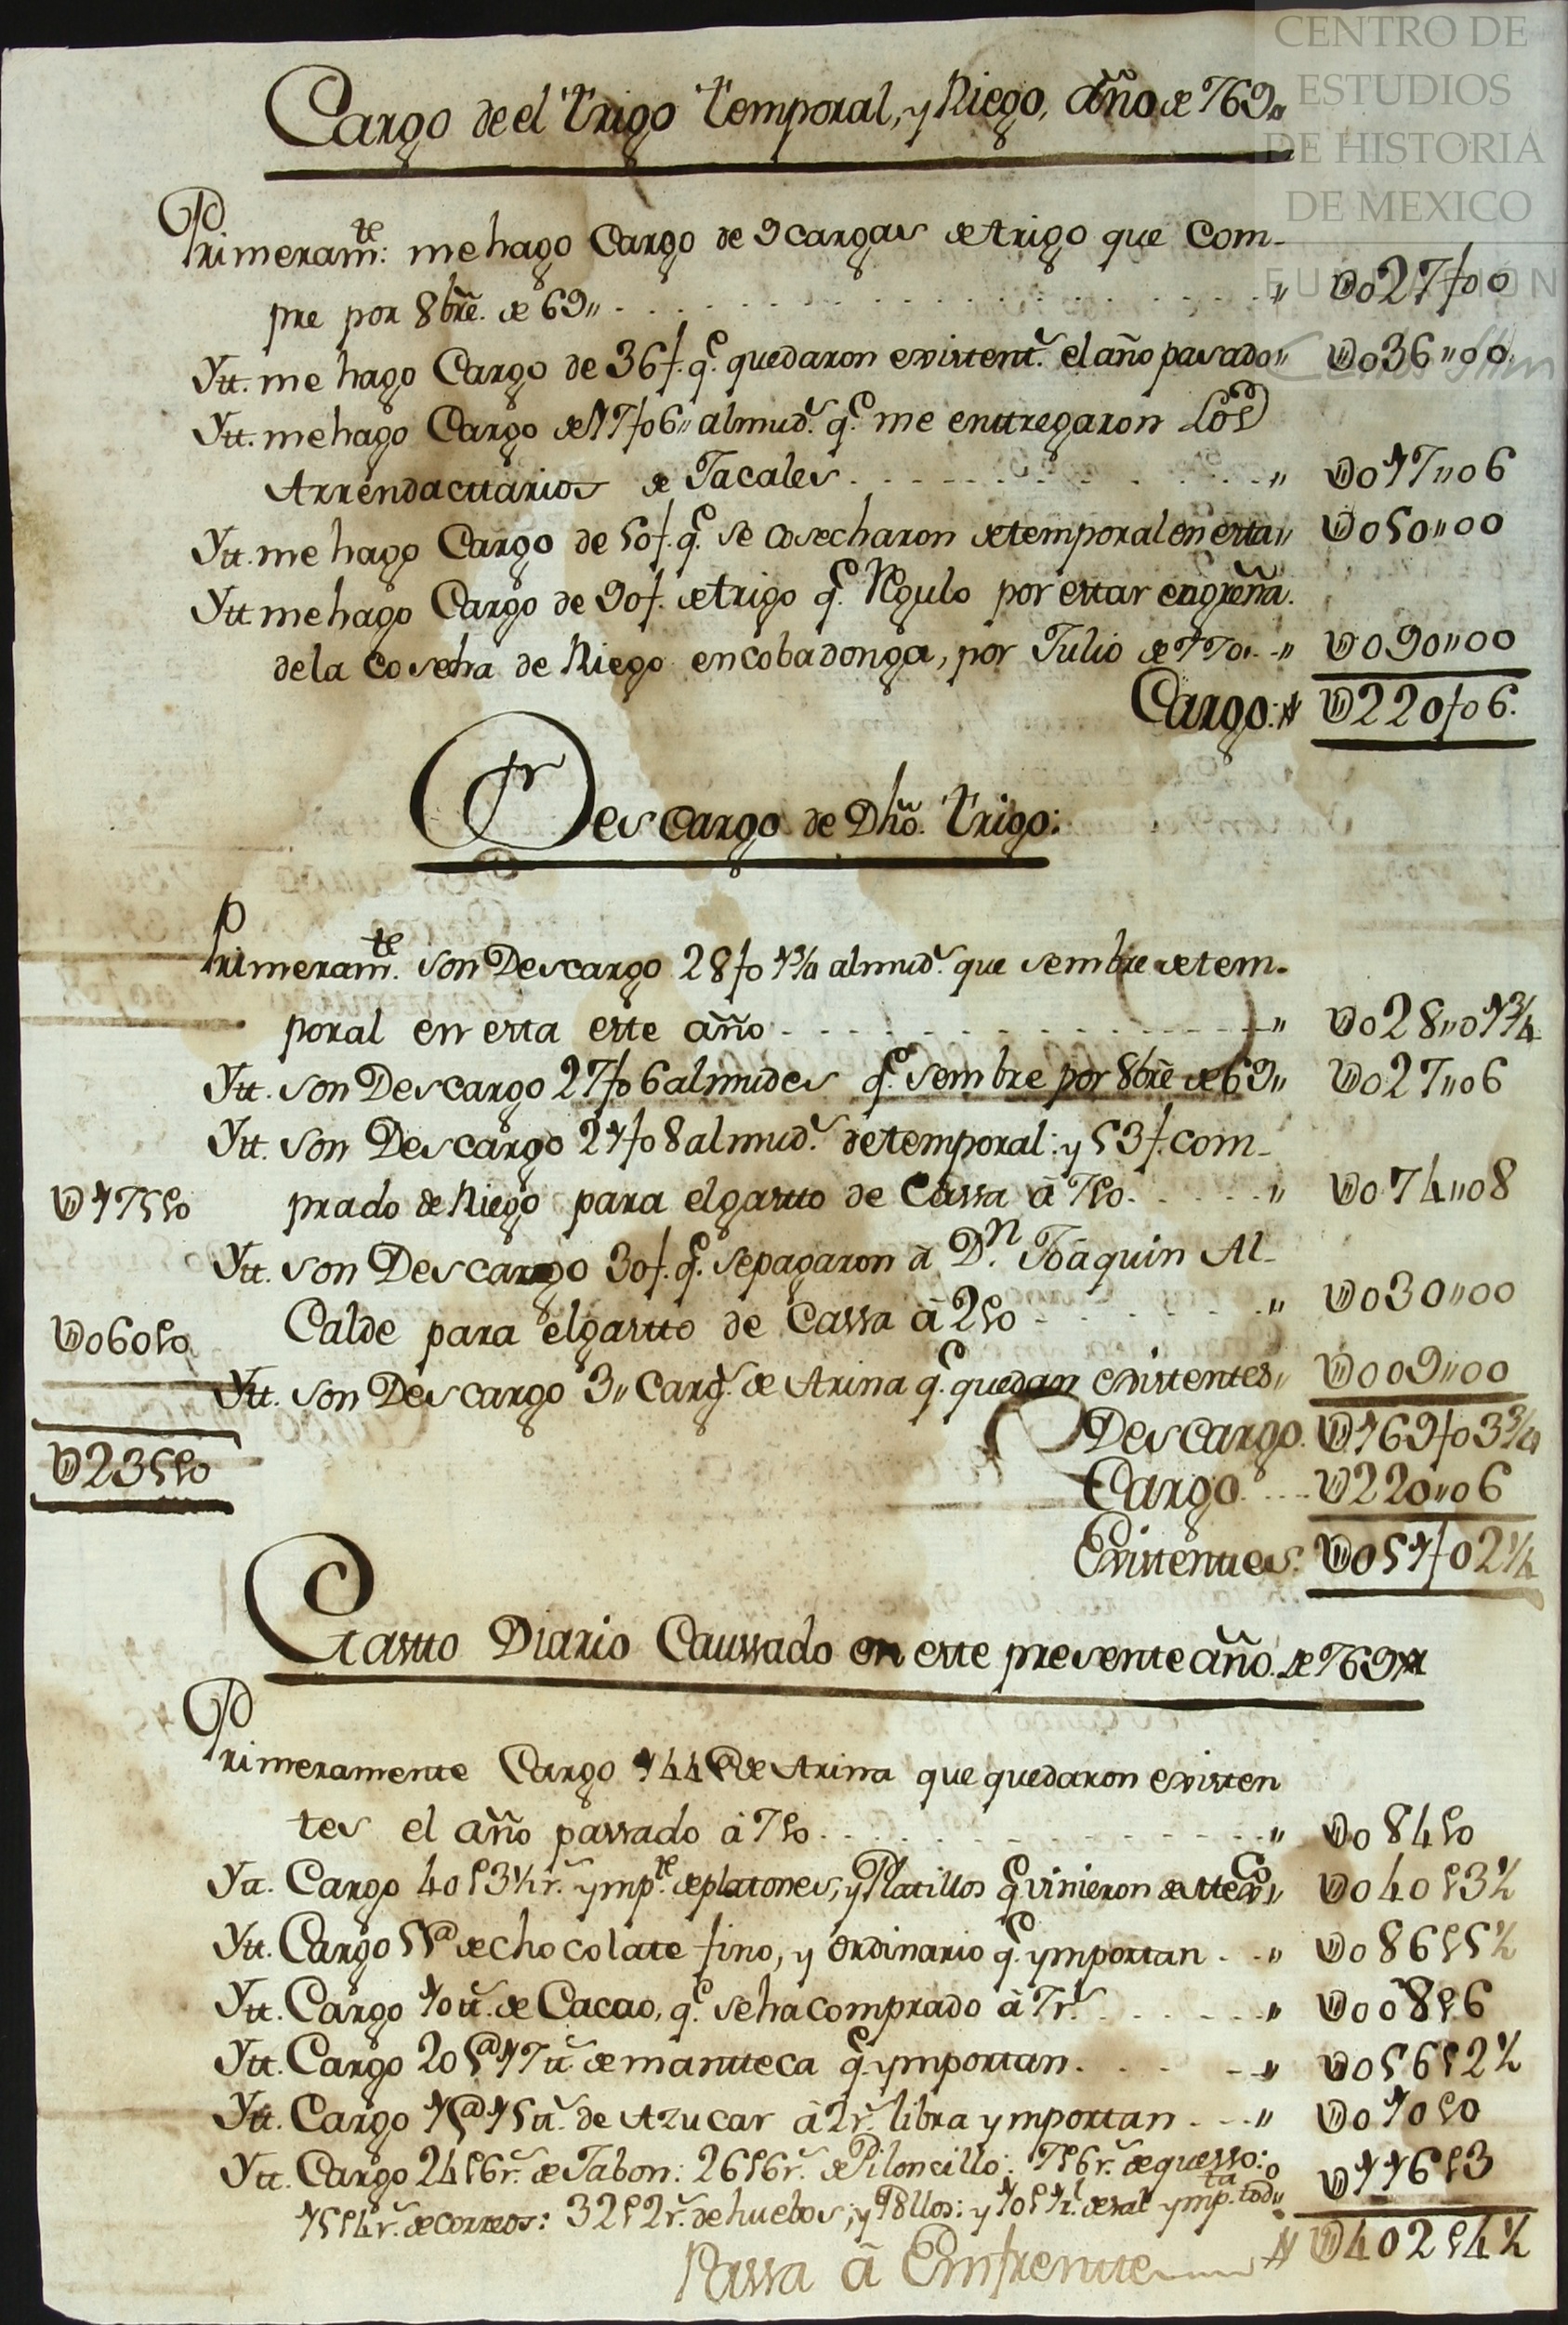 CENTRO DE
ESTUDIOS
DE HISTORIA
DE MEXICO
Cargo de el Trigo Temporal, y Riego, año de 769,,
Primeramte: me hago Cargo de 9 cargas de trigo que Com-
pre por 8bre. de 69,, - - - ,, U027f00
Ytt. me hago Cargo de 36f. qe. quedaron existents. el año pasado,, U036,,00.
Ytt. me hago Cargo de 17f06,, almuds. qe. me enttregaron Los
Arrendacttarios de Jacales - - - ,, U017,,06
Ytt. me hago Cargo de 50f. qe. se cosecharon de temporal en esta,, U050,,00
Ytt me hago Cargo de 90f. de trigo qe. Regulo por estar en greña.
de la Cosecha de Riego en cobadonga, por Julio de 770. - ,, U090,,00
Cargo: U220f06.
Descargo de Dho. Trigo:
Primeramte. son Descargo 28f01¾ almuds. que sembre de tem-
poral en esta este año - - - ,, U028,,01¾
Ytt. son Descargo 27f06 almudes qe. sembre por 8bre de 69,, U027,,06
Ytt. son Descargo 21f08 almuds. de temporal: y 53f. com-
U175ps0 prado de Riego para el gastto de Cassa à 7ps0. - - - ,, U074,,08
Ytt. son Descargo 30f. qe. se pagaron à Dn. Joaquin Al-
U060ps0 Calde para el gastto de Cassa à 2ps0 - - - ,, U030,,00
Ytt. son Descargo 3,, Cargs. de Arina qe. quedan existentes,, U009,,00
Descargo. U169f03¾
U235ps0 Cargo. - - - U220,,06
Existenttes. U051f02¼
Gastto Diario Caussado en este presente año. de 769
Primeramente Cargo 144 @ de Arina que quedaron existen
tes el año passado à 7ps0. - - - ,, U084ps0
Ytt. Cargo 40ps3½rs. ympte. de platones, y Platillos qe. vinieron de Mexco,, U040ps3½
Ytt. Cargo 5@ de chocolate fino, y ordinario qe. ymportan - - ,, U086ps5½
Ytt. Cargo 10 tts. de Cacao, qe. se ha comprado à 7rs. - - - ,, U008ps6
Ytt. Cargo 20@17 tts. de mantteca qe. ymporttan. - - - ,, U056ps2½
Ytt. Cargo 1@15 tts. de Azucar à 2rs. libra ymporttan - - ,, U010ps0
Ytt. Cargo 24ps6rs. de Jabon: 26ps6rs. de Piloncillo: 7ps6rs. de quesso:
15ps4rs. de correos: 32ps2rs. de huebos, y Pollos: y 10ps1rl. de sal ympta. todo,, U116ps3
Passa â Enfrentte U402ps4½